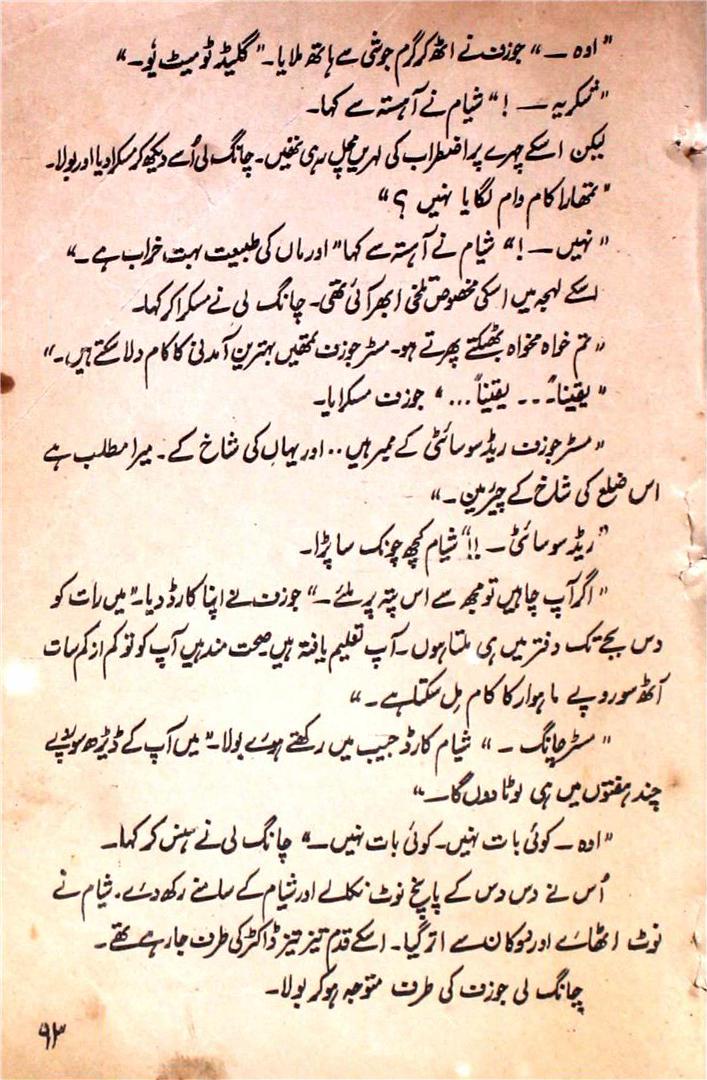 "اوہ — " جوزف نے اٹھ کر گرم جوشی سے ہاتھ ملایا۔ "گلیڈ ٹو میٹ یُو۔"
"شکریہ — !" شیام نے آہستہ سے کہا۔
لیکن اسکے چہرے پر اضطراب کی لہریں مچل رہی تھیں۔ چانگ لی اُسے دیکھ کر مسکرا دیا اور بولا۔
"تمھارا کام وام لگا یا نہیں ؟"
"نہیں — !" شیام نے آہستہ سے کہا "اور ماں کی طبیعت بہت خراب ہے۔"
اسکے لہجہ میں اسکی مخصوص تلخی ابھر آئی تھی۔ چانگ لی نے مسکرا کر کہا۔
"تم خواہ مخواہ بھٹکتے پھرتے ہو۔ مسٹر جوزف تمھیں بہترین آمدنی کا کام دلا سکتے ہیں۔"
"یقیناً۔۔۔ یقیناً ..." جوزف مسکرایا۔
"مسٹر جوزف ریڈ سوسائٹی کے ممبر ہیں .. اور یہاں کی شاخ کے۔ میرا مطلب ہے
اس ضلع کی شاخ کے چیرمین۔"
"ریڈ سوسائٹی — !!" شیام کچھ چونک سا پڑا۔
"اگر آپ چاہیں تو مجھ سے اس پتہ پر ملئے۔" جوزف نے اپنا کارڈ دیا۔ "میں رات کو
دس بجے تک دفتر میں ہی ملتا ہوں۔ آپ تعلیم یافتہ ہیں صحت مند ہیں آپ کو تو کم از کم سات
آٹھ سو روپے ماہوار کا کام مِل سکتا ہے۔"
"مسٹر چانگ — " شیام کارڈ جیب میں رکھتے ہوئے بولا۔ "میں آپ کے ڈیڑھ سو روپے
چند ہفتوں میں ہی لوٹا دوں گا —"
"اوہ — کوئی بات نہیں۔ کوئی بات نہیں —" چانگ لی نے ہنس کر کہا۔
اُس نے دس دس کے پانچ نوٹ نکالے اور شیام کے سامنے رکھ دئے۔ شیام نے
نوٹ اٹھائے اور دوکان سے اتر گیا۔ اسکے قدم تیز تیز ڈاکٹر کی طرف جا رہے تھے۔
چانگ لی جوزف کی طرف متوجہ ہو کر بولا۔
۹۳